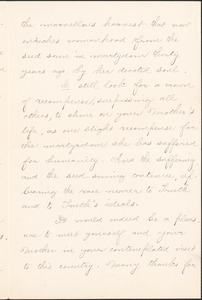 the marvellous harvest that now
enriches womanhood from the
seed sown in martyrdom thirty
years ago by her devoted soul.
I still look for a crown
of recompense, surpassing all
others, to shine on your Mother's
life, as one slight recompense for
the martyrdom she has suffered
for humanity. And the suffering
and the seed sowing continues,
bearing the race nearer to Truth
and to Truth's ideals.
It would indeed be a pleas-
ure to meet yourself and your
Mother in your contemplated visit
to this country. Many thanks for